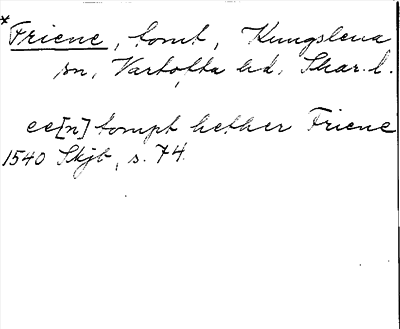 *Friene, tomt, Kungslena
sn, Vartofta hd, Skar. l.
ee[n] tompt hether Friene
1540 Skjb, s. 74.